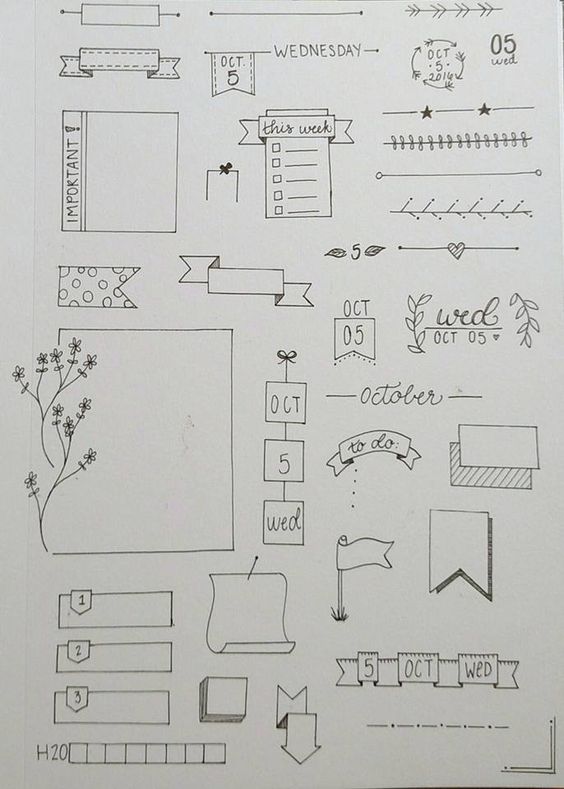 WEDNESDAY
OCT
5
OCT
·5·
2016
05
wed
IMPORTANT!
this week
5
OCT
05
wed
OCT 05
OCT
5
wed
October
to do:
1
2
3
5 OCT WED
H20